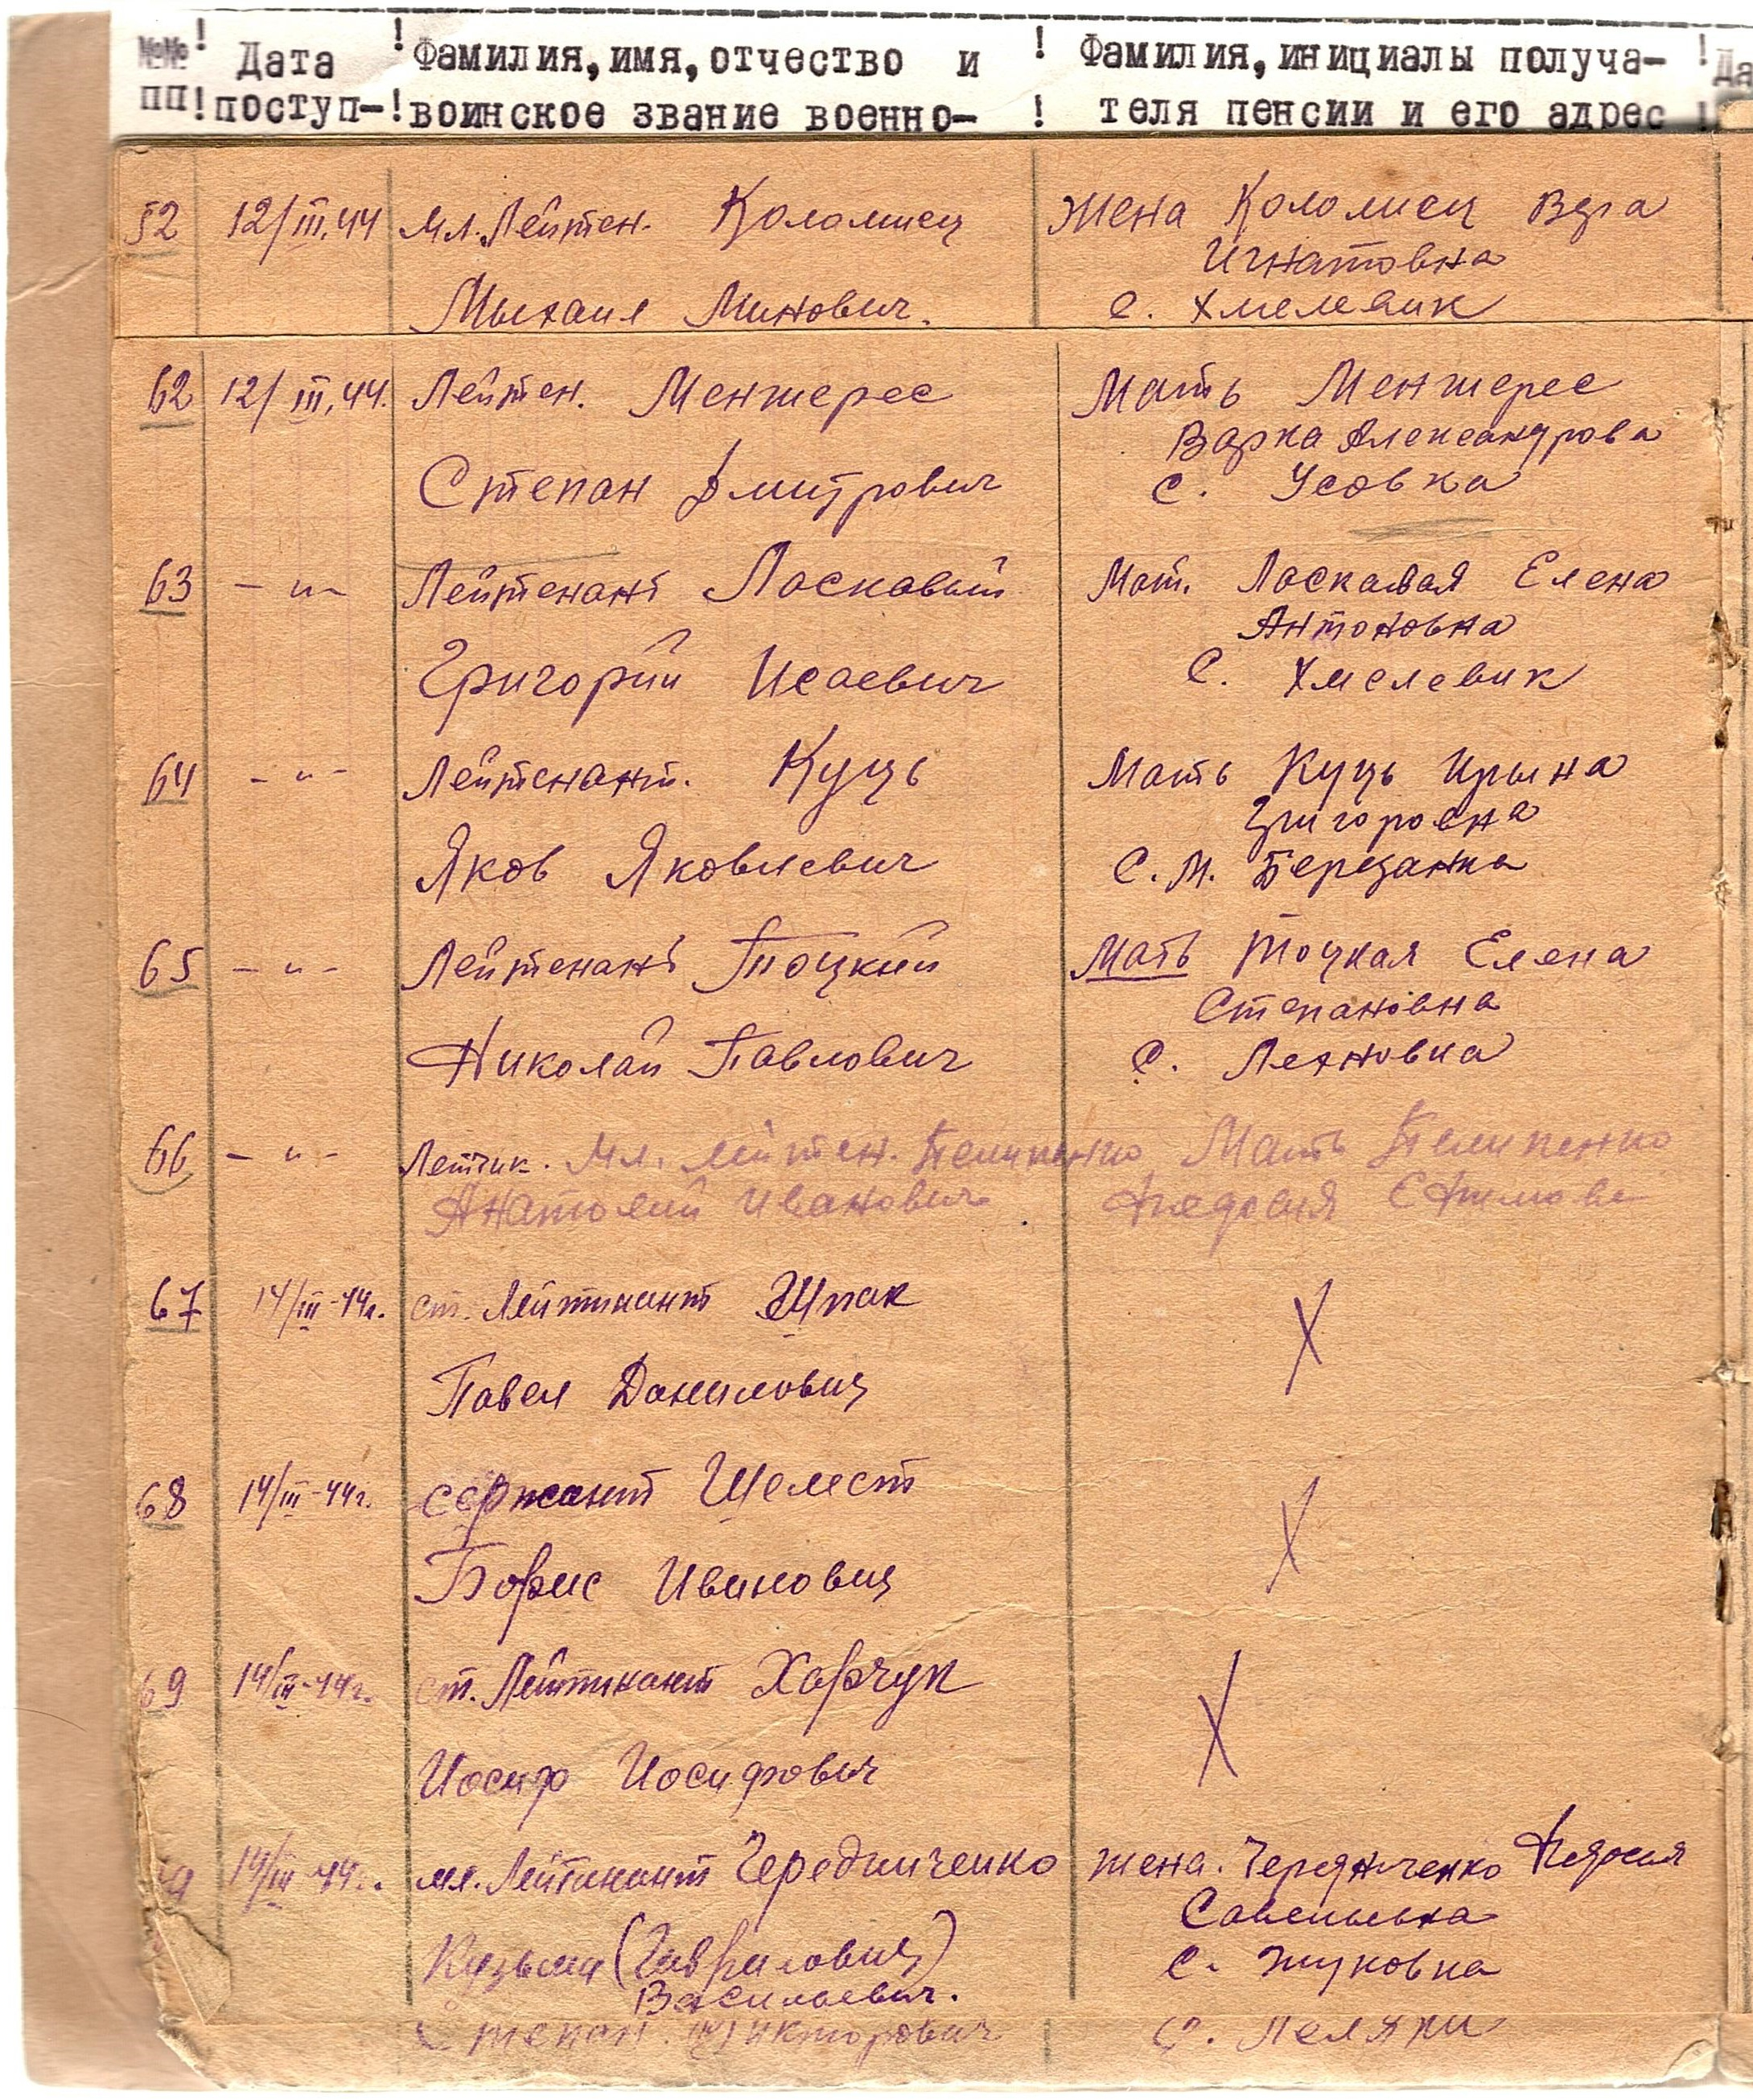 №№ ! Дата ! Фамилия, имя, отчество и ! Фамилия, инициалы получа- ! Да
пп ! поступ- ! воинское звание военно- ! теля пенсии и его адрес !
52 12/III.44 Мл. Лейтен. Коломиец Жена Коломиец Вера
Игнатовна
Михаил Минович. с. Хмелевик
62 12/III.44. Лейтен. Менжерес Мать Менжерес
Варка Александрова
Степан Дмитрович с. Усовка
63 — " — Лейтенант Ласкавый Мат. Ласкавая Елена
Антоновна
Григорий Исаевич С. Хмелевик
64 - " - Лейтенант. Куць Мать Куць Ирына
Григоровна
Яков Яковлевич С. М. Березанка
65 - " - Лейтенант Тоцкий Мать Тоцкая Елена
Степановна
Николай Павлович С. Лехновка
66 - " - Летчик. Мл. лейтен. Пелипенко Мать Пелипенко
Анатолий Иванович Федосия
67 14/III-44г. ст. Лейтинант Шпак X
Павел Данилович
68 14/III-44г. сержант Шелест X
Борис Иванович
69 14/III-44г. ст. Лейтинант Харчук X
Иосиф Иосифович
14/III-44. мл. Лейтинант Чередниченко жена. Чередниченко Федосия
Савельевна
Кузьма (Гаврилович) с. Жуковка
Васильевич.
Степан Викторович С.